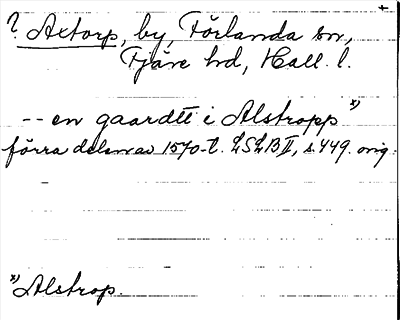 ? Axtorp, by, Förlanda sn,
Fjäre hd, Hall. l.
-- en gaardtt i Alstropp x)
förra delen av 1570-t. LSLB II, s. 449. orig.
x) Alstrop.